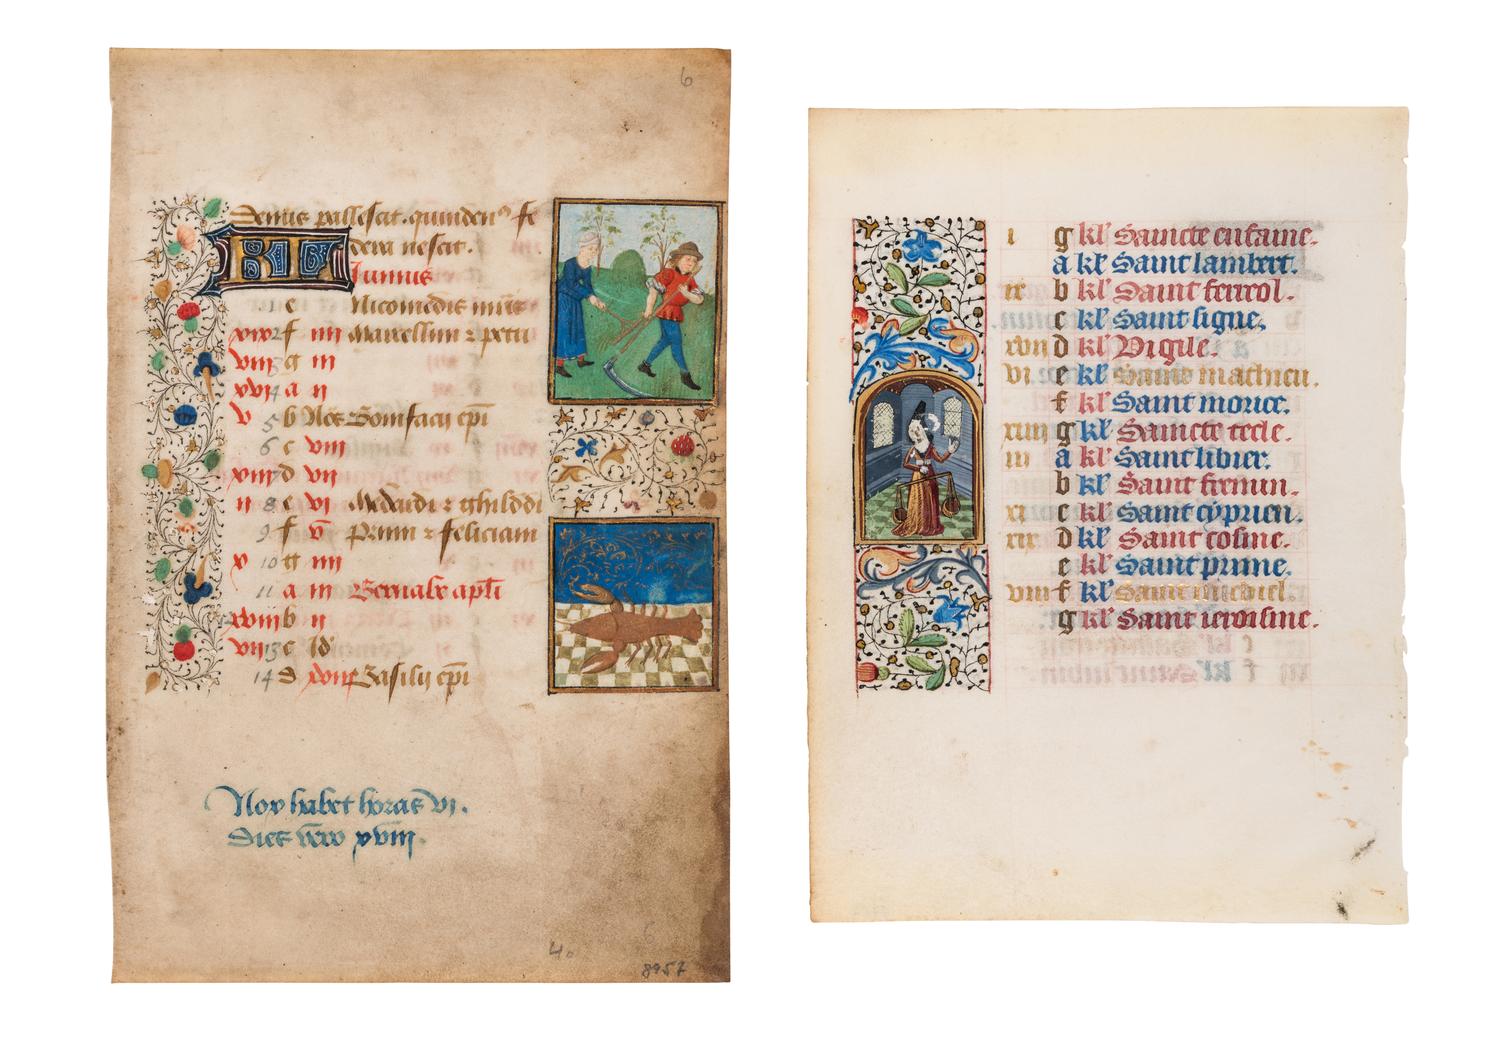 6
Denus pallescit. quindenus fe
KL dera nescit.
Junius
1 e Nicomedis
xix 2 f iiii Marcellini ⁊ petri
viii 3 g iii
xvi 4 a ii
v 5 b Nos Bonifacii epi
6 c viii
xiii 7 d vii
ii 8 e vi Medardi ⁊ ghildardi
9 f v Primi ⁊ feliciani
x 10 g iiii
11 a iii Bernabe apli
xviii b ii
vii 13 c Id
14 d xviii Basilii epi
Nox habet horas vi.
Dies vero xviii.
4
6
8957
i g kl' Saincte enfaine.
a kl' Saint lambert.
ix b kl' Saint ferreol.
c kl' Saint signe.
xvii d kl' Vigile.
vi e kl' Saint mathieu.
f kl' Saint morice.
xiiii g kl' Saincte tecle.
iii a kl' Saint libier.
b kl' Saint fremin.
xi c kl' Saint cyprien.
xix d kl' Saint cosme.
e kl' Saint prime.
viii f kl' Saint michiel
g kl' Saint ieroisme.